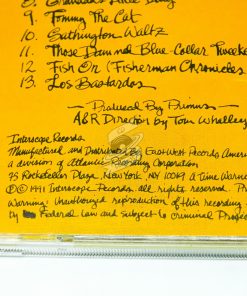 8. Grandad's Little Ditty
9. Tommy The Cat
10. Sathington Waltz
11. Those Damned Blue-Collar Tweeke
12. Fish On (Fisherman Chronicles
13. Los Bastardos
— Produced By Primus —
A&R Direction by Tom Whalley
Interscope Records
Manufactured and Distributed By East West Records Amer
a division of Atlantic Recording Corporation
75 Rockefeller Plaza, New York, NY 10019 A Time Warner
℗© 1991 Interscope Records. All rights reserved. Pr
Warning: Unauthorized reproduction of this recording
by Federal law and subject to Criminal Prosec